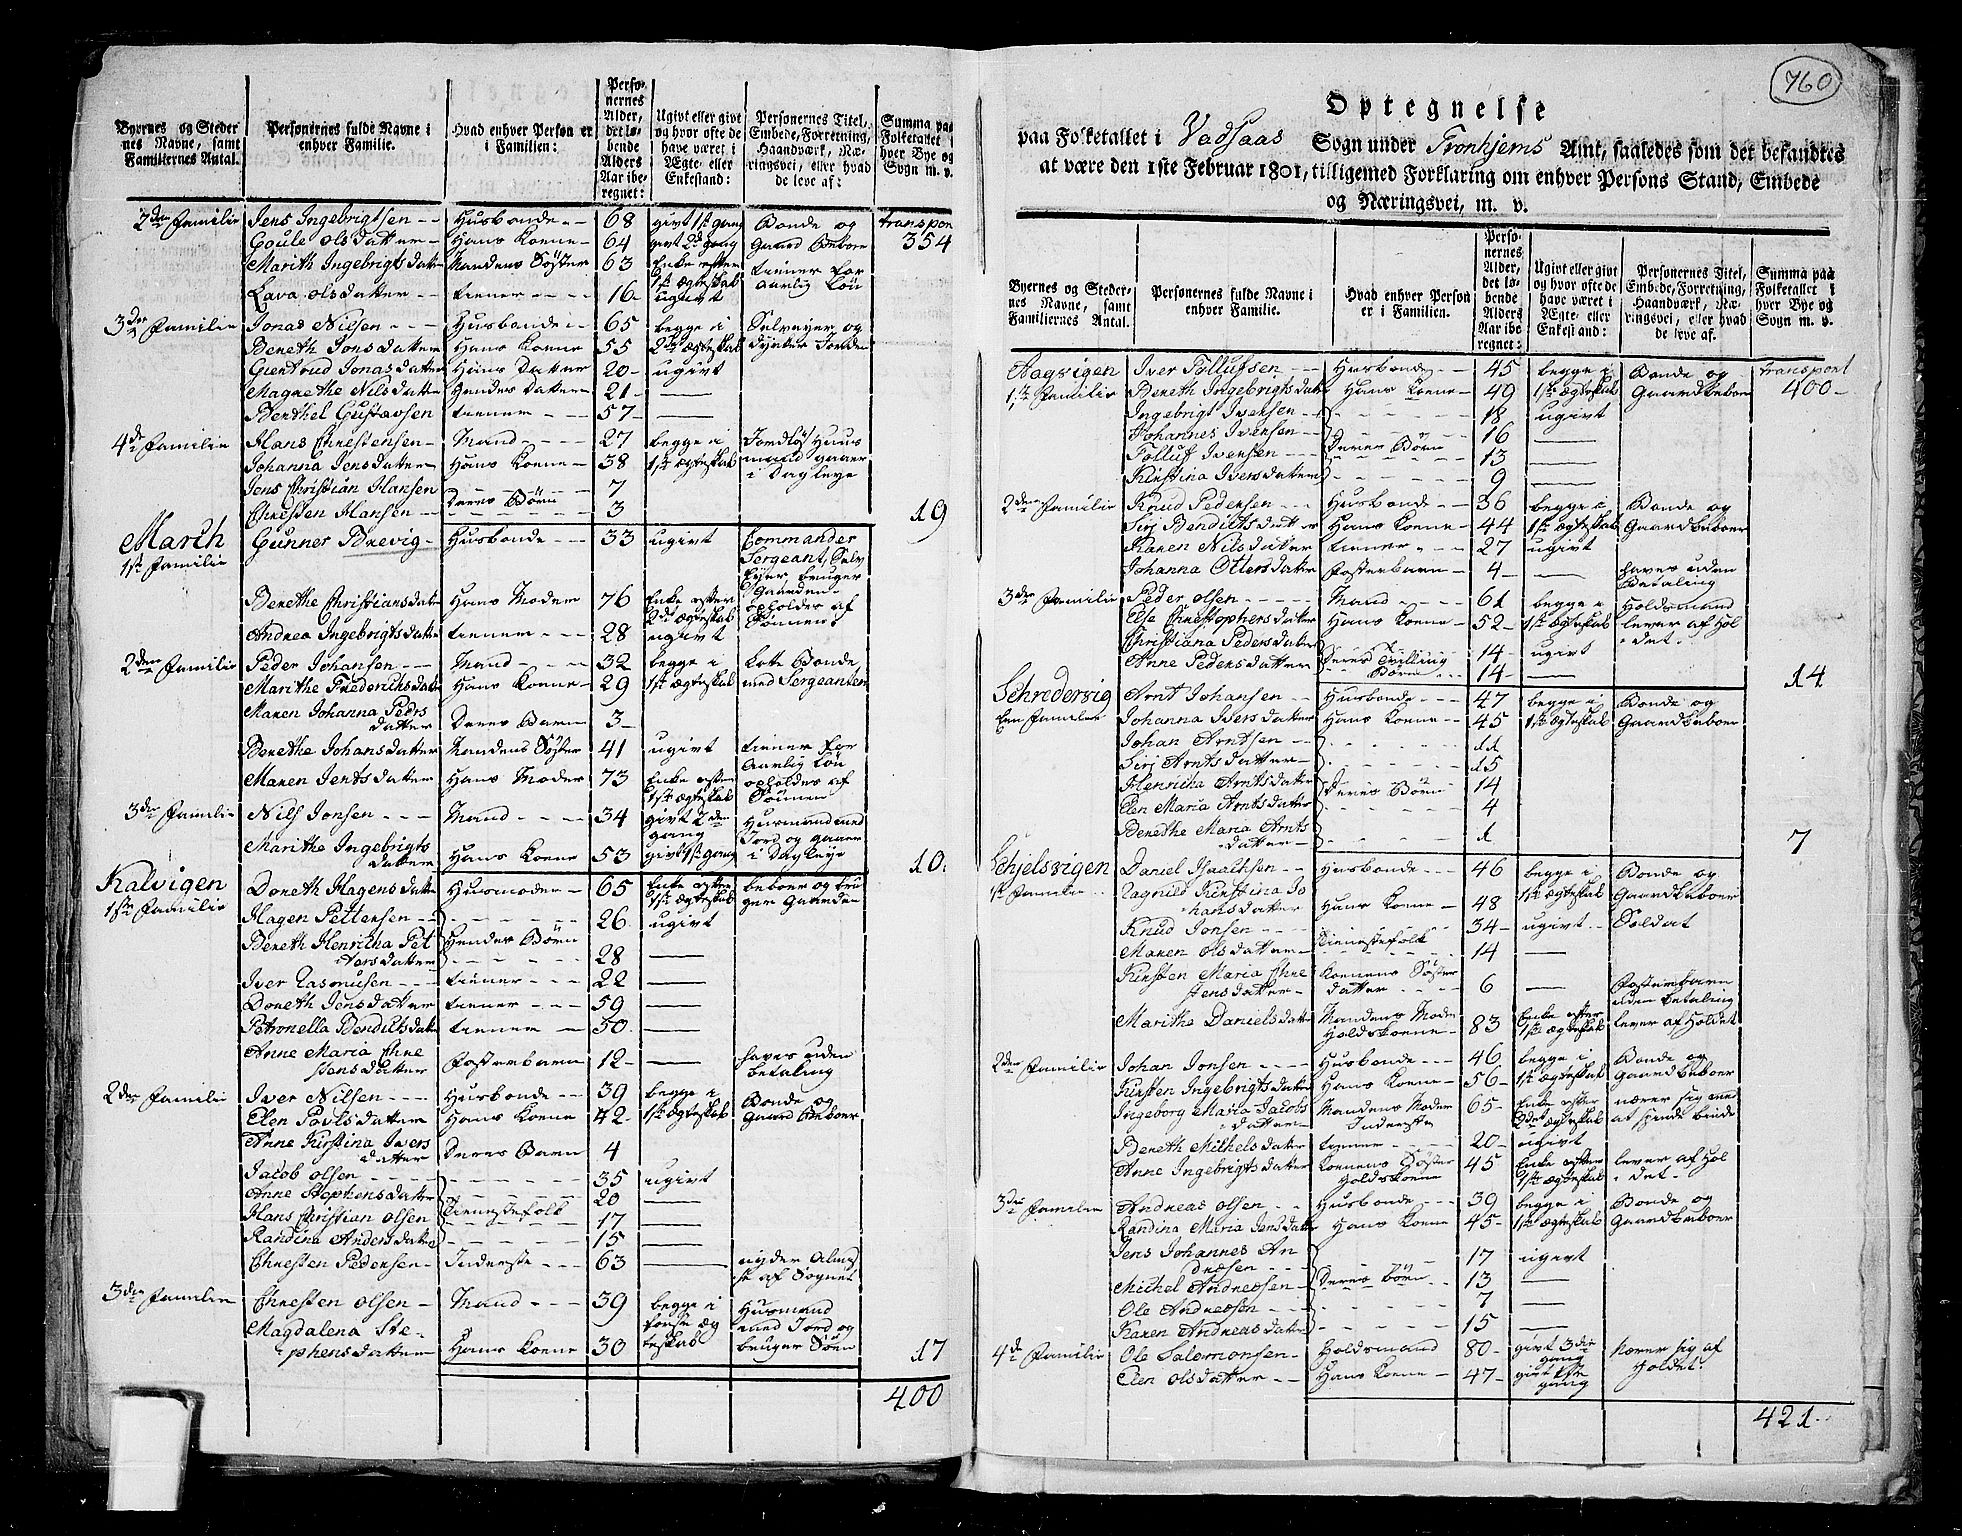 Byernes og Steder
nes Navne, samt
Familiernes Antal.
Personernes fulde Navne i
enhver Familie.
Hvad enhver Person er
i Familien:
Perso-
nernes
Alder,
det lø-
bende
Alders
Aar ibe-
regnet:
Ugivt eller givt
og hvor ofte de
have været i
Ægte- eller
Enkestand:
Personernes Titel,
Embede, Forretning,
Haandværk, Næ-
ringsvei, eller hvad
de leve af:
Summa paa
Folketallet
hver Bye og
Sogn m. v.
2den Familie Jens Ingebrigtsen Husbonde 68 givt 1ste gang Bonde og transport
Goule Olsdatter Hans Koene 64 givt 2d gang Gaard Beboer 354
Marith Ingebrigtsdatter Mandens Søster 63 Enke efter 1ste ægteskab tiener for
Lava Olsdatter tiener 16 ugivt aarlig Løn
3die Familie Jonas Nilsen Husbonde 65 begge i Selveyer og
Bereth Jonsdatter Hans Koene 55 2det ægteskab dyrker Jorden
Giertrud Jonasdatter Hans Datter 20 ugivt
Magrethe Nilsdatter Hendes Datter 21 —
Berthel Gustavsen tiener 57 —
4de Familie Hans Christensen Mand 27 begge i Jordløs Huus
Johanna Jensdatter Hans Koene 38 1ste ægteskab mand gaaer
i Dagleye
Jens Christian Hansen 7
Christen Hansen Deres Børn 3 19
March Gunner Brevig Husbonde 33 ugivt Commander
1ste Familie Sergeant, Selv
Eyer bruger
Gaarden
Berethe Christiansdatter Hans Moder 76 Enke efter 2det ægteskab opholdes af
Sønnen
Andrea Ingebrigtsdatter tiener 28 ugivt
2den Familie Peder Johansen Mand 32 begge i Lotte Bonde
Marithe Frederichsdatter Hans Koene 29 1ste ægteskab med Sergeanten
Maren Johanna Peders
datter Deres Barn 3
Berethe Johansdatter Mandens Søster 41 ugivt tiener for
aarlig Løn
Maren Jentsdatter Hans Moder 73 Enke efter opholdes af
1ste ægteskab Sønnen
3die Familie Nils Jonsen Mand 34 givt 2den gang Husmand med
Marithe Ingebrigts
datter Hans Koene 53 givt 1ste gang Jord og gaaer
i Dagleye 10
Kalvigen Doreth Hagensdatter Husmoder 65 Enke efter beboer og bru
1ste Familie 1ste ægteskab ger Gaarden
Hagen Pettersen 26 ugivt
Bereth Henricha Pet
tersdatter Hendes Børn 28 —
Iver Rasmusen tiener 22 —
Doreth Jensdatter tiener 59 —
Petronella Bendictsdatter tiener 30 —
Anne Maria Chre
stensdatter Fosterbarn 12 — haves uden
betaling
2den Familie Iver Nilsen Husbonde 39 begge i Bonde og
Elen Povlsdatter Hans Koene 42 1ste ægteskab Gaard Beboer
Anne Kirstina Ivers
datter Deres Barn 4
Jacob Olsen 35 ugivt
Anne Stephensdatter 20 —
Hans Christian Olsen Tienestefolk 17 —
Randina Andersdatter 15 —
Christen Pedersen Inderste 63 — nyder Almis
se af Sognet
3die Familie Christen Olsen Mand 39 begge i Husmand
Magdalena Ste-
phensdatter Hans Koene 30 første æg
teskab med Jord og
bruger Søen 17
400
760
Optegnelse
paa Folketallet i Vadsaas Sogn under Tronhjems Amt, saaledes som det befandtes
at være den 1ste Februar 1801, tilligemed Forklaring om enhver Persons Stand, Embede
og Næringsvei, m. v.
Byernes og Steder-
nes Navne, samt
Familiernes Antal.
Personernes fulde Navne i
enhver Familie.
Hvad enhver Person
er i Familien.
Perso-
nernes
Alder,
det lø-
bende
Alders
Aar ibe-
regnet:
Ugivt eller givt
og hvor ofte de
have været i
Ægte- eller
Enkestand:
Personernes Titel,
Embede, Forretning,
Haandværk, Næ-
ringsvei, eller hvad
de leve af.
Summa paa
Folketallet i
hver Bye og
Sogn m. v.
Aagvigen Iver Tollufsen Husbonde 45 begge i Bonde og transport
1ste Familie Bereth Ingebrigtsdatter Hans Koene 49 1ste ægteskab Gaardbeboer 400
Ingebrigt Iversen 18 ugivt
Johannes Iversen 16 —
Tolluf Iversen Deres Børn 13 —
Kirstina Iversdatter 9 —
2den Familie Knud Pedersen Husbonde 36 begge i Bonde og
Siri Bendictsdatter Hans Koene 44 1ste ægteskab Gaardbeboer
Karen Nilsdatter tiener 27 ugivt
Johanna Ottersdatter Fosterbarn 4 — haves uden
Betaling
3die Familie Peder Olsen Mand 61 begge i Holdsmand
Else Christophersdatter Hans Koene 52 1ste ægteskab lever af Hol
det.
Christiana Pedersdatter 14 ugivt
Anne Pedersdatter Deres Tvilling
Børn 14 — 14
Schredervig Arnt Johansen Husbonde 47 begge i Bonde og
Een Familie Johanna Iversdatter Hans Koene 45 1ste ægteskab Gaardbeboer
Johan Arntsen 11
Siri Arntsdatter 15
Henricha Arntsdatter Deres Børn 14
Elen Maria Arntsdatter 4
Berethe Maria Arnts
datter 1 7
Schjelsvigen Daniel Isachsen Husbonde 46 begge i Bonde og
1ste Familie Zagnild Kirstina Jo
hansdatter Hans Koene 48 1ste ægteskab Gaardbeboer
Knud Jonsen 34 ugivt Soldat
Maren Olsdatter Tienestefolk 14 —
Kirsten Maria Chre
stensdatter Koenens Søster
datter 6 — Fosterbarn
uden betaling
Marithe Danielsdatter Mandens Moder
Holdskoene 83 Enke efter
1ste ægteskab lever af Holdet
2den Familie Johan Jonsen Husbonde 46 begge i Bonde og
Kirsten Ingebrigtsdatter Hans Koene 56 1ste ægteskab Gaardbeboer
Ingeborg Maria Jacobs
datter Mandens Moder
Inderste 65 Enke efter
2det ægteskab nærer sig med
at spinde binde
Bereth Michelsdatter tiener 20 ugivt
Anne Ingebrigtsdatter Koenens Søster
Holdskoene 45 Enke efter
1ste ægteskab lever af Hol
det.
3die Familie Andreas Olsen Husbonde 39 begge i Bonde og
Randina Maria Jensdatter Hans Koene 45 1ste ægteskab Gaardbeboer
Jens Johannes An
dresen 17 ugivt
Michel Andreasen Deres Børn 13 —
Ole Andreasen 7 —
Karen Andreasdatter 15 —
4de Familie Ole Salomonsen Holdsmand 80 givt 3die
gang nærer sig af
Holdet.
Elen Olsdatter Hans Koene 47 givt 1ste
gang
421